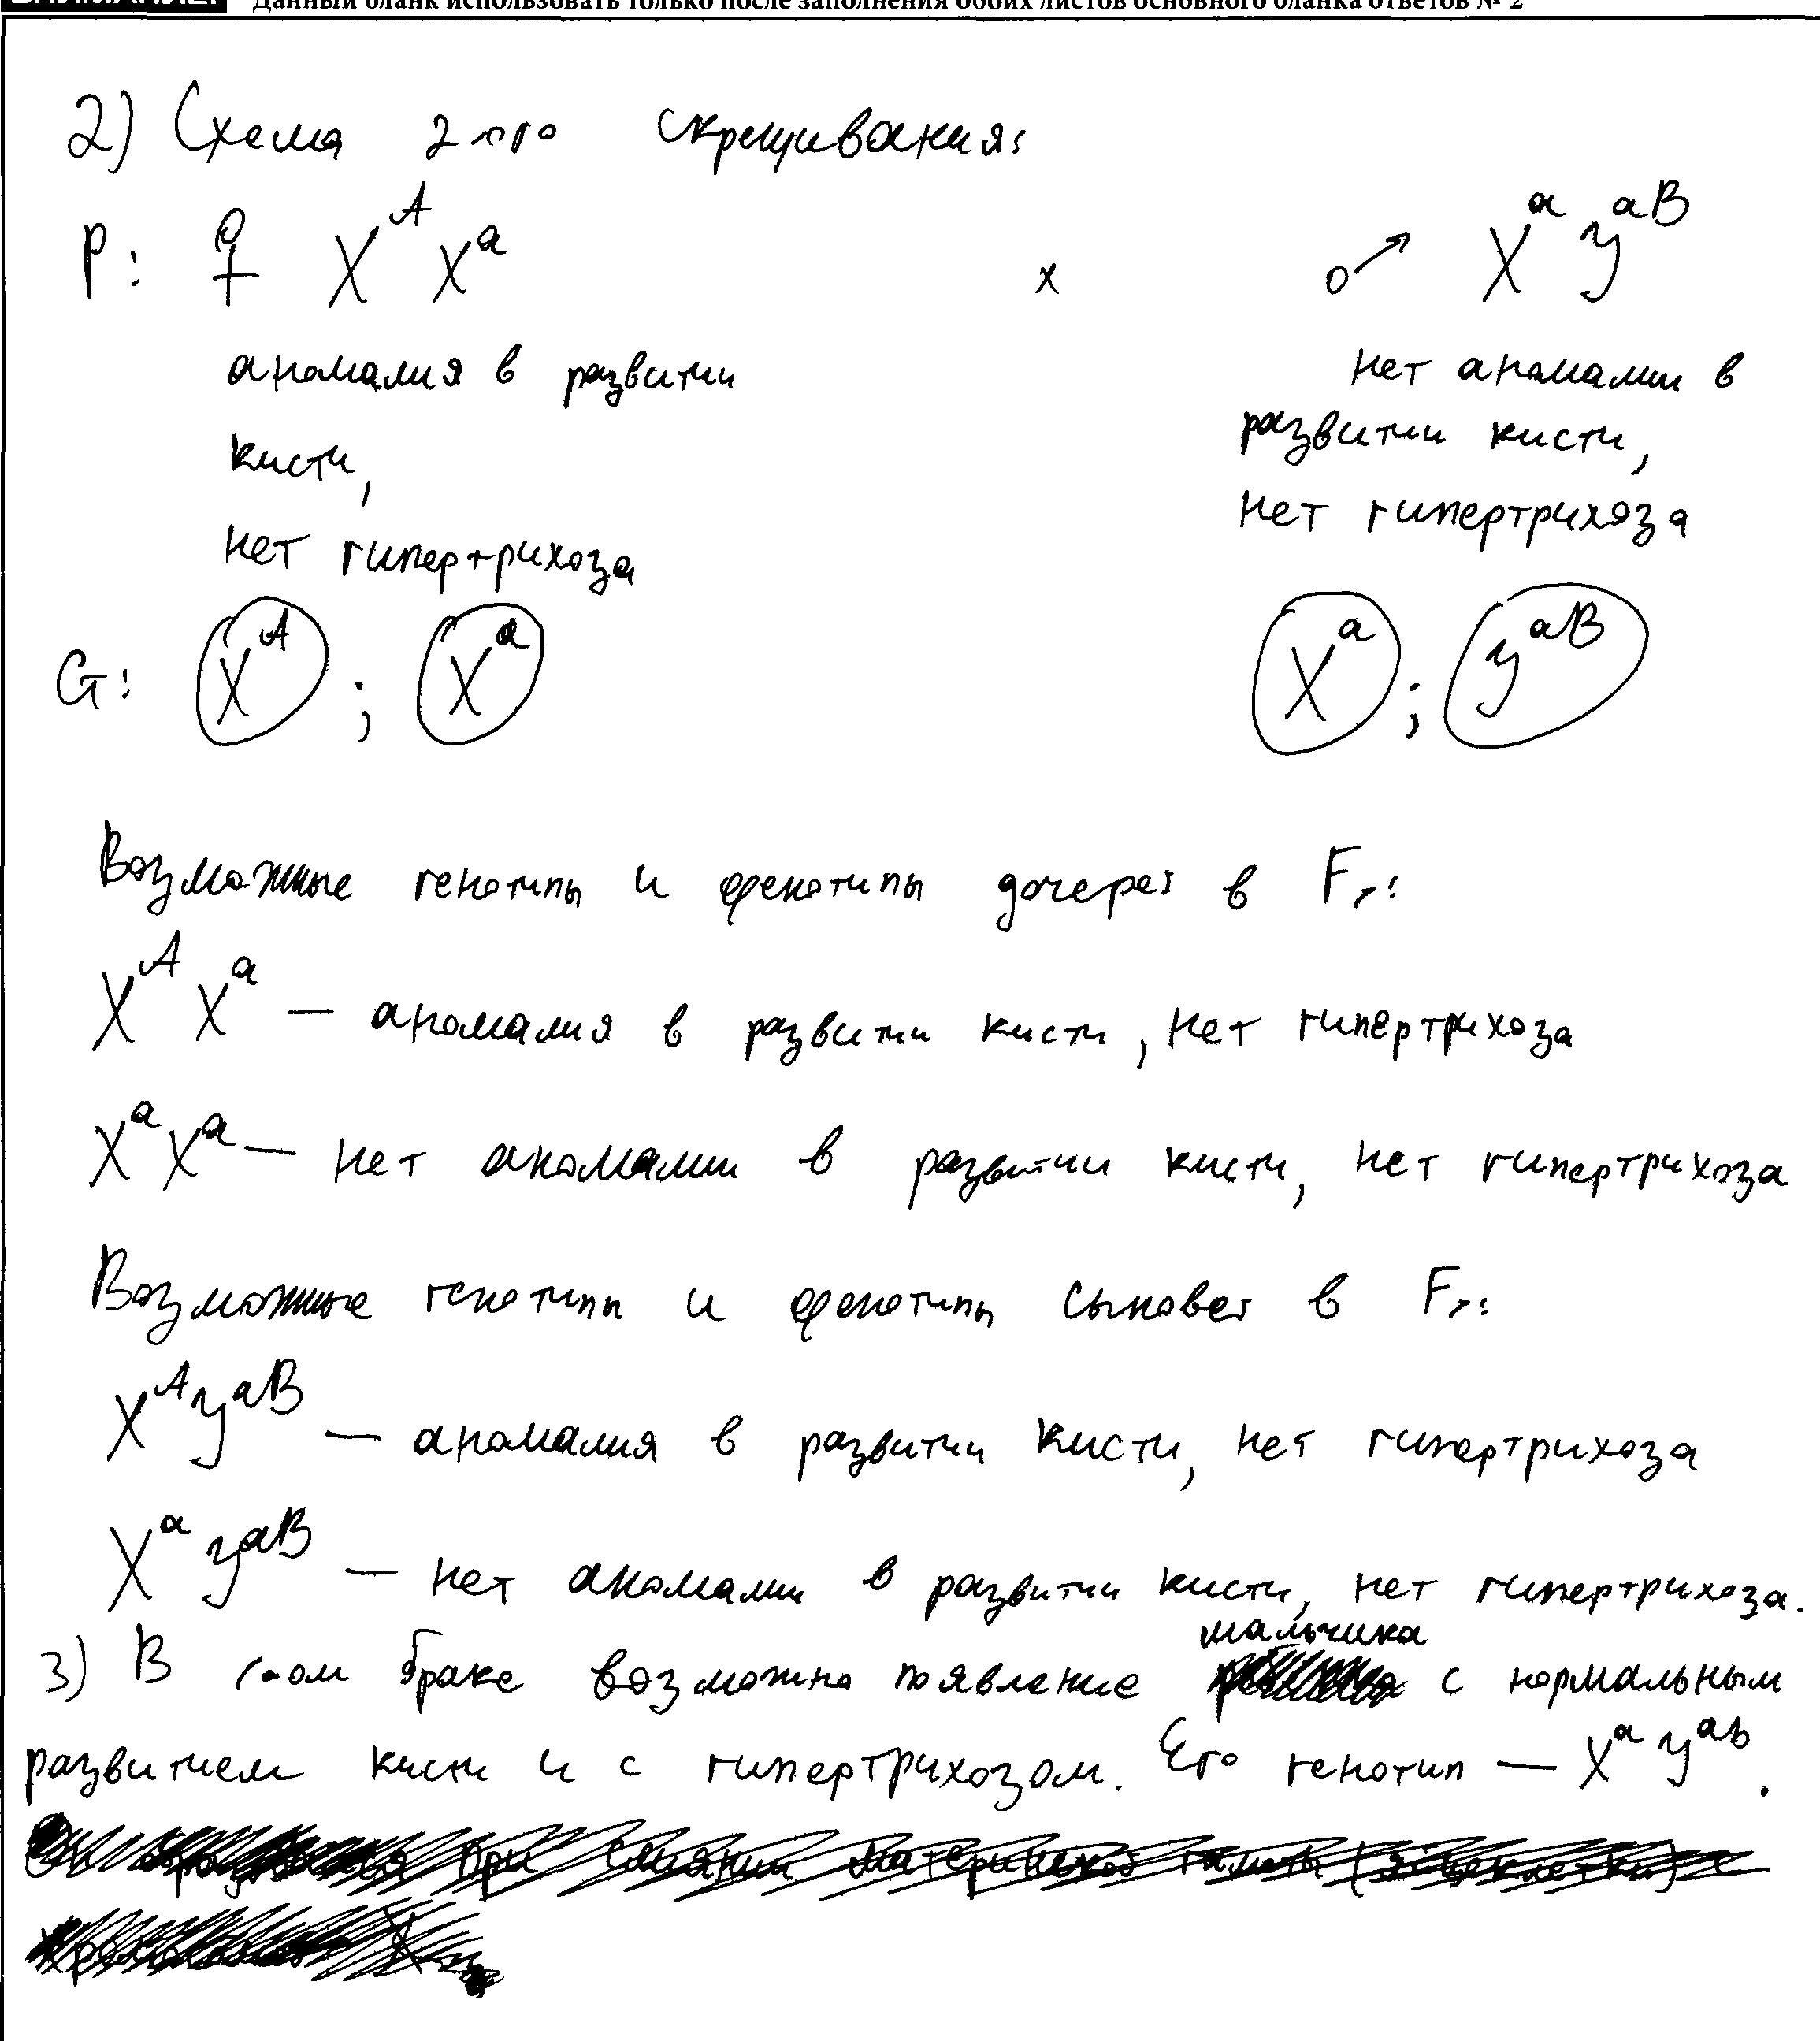 Данный бланк использовать только после заполнения обоих листов основного бланка ответов № 2
2) Схема 2-ого скрещивания:
P: ♀ X^A X^a x ♂ X^a У^aB
аномалия в развитии нет аномалии в
кисти, развитии кисти,
нет гипертрихоза нет гипертрихоза
G: X^A ; X^a X^a ; У^aB
Возможные генотипы и фенотипы дочерей в F₁:
X^A X^a — аномалия в развитии кисти, нет гипертрихоза
X^a X^a — нет аномалии в развитии кисти, нет гипертрихоза
Возможные генотипы и фенотипы сыновей в F₁:
X^A У^aB — аномалия в развитии кисти, нет гипертрихоза
X^a У^aB — нет аномалии в развитии кисти, нет гипертрихоза.
мальчика
3) В 1-ом браке возможно появление с нормальным
развитием кисти и с гипертрихозом. Его генотип — X^a У^ab.
при слиянии материнской гаметы (яйцеклетки) с